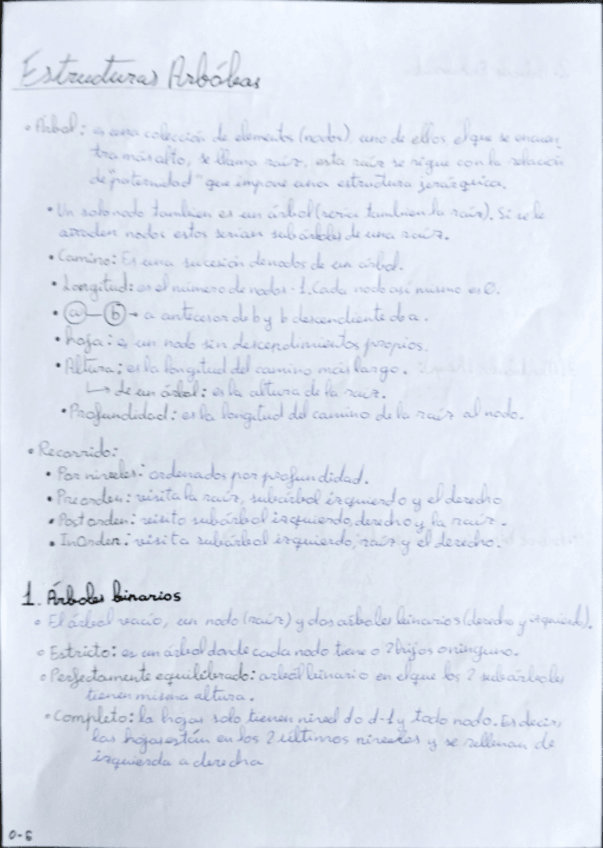 Estructuras Arbóleas
• Árbol: es una colección de elementos (nodos), uno de ellos, el que se encuen
tra más alto, se llama raíz, esta raíz se sigue con la relación
de "paternidad" que impone una estructura jerárquica.
• Un solo nodo tambien es un árbol (seria tambien la raíz). Si se le
añaden nodos estos serian subárboles de una raíz.
• Camino: Es una sucesión de nodos de un árbol.
• Longitud: es el número de nodos -1. Cada nodo así mismo es 0.
• a — b → a antecesor de b y b descendiente de a.
• hoja: es un nodo sin propios.
• Altura: es la longitud del camino más largo.
↳ de un árbol: es la altura de la raíz.
• Profundidad: es la longitud del camino de la raíz al nodo.
• Recorrido:
• Por niveles: ordenados por profundidad.
• Preorden: visita la raíz, subárbol izquierdo y el derecho
• Postorden: visito subárbol izquierdo, derecho y la raíz.
• InOrden: visita subárbol izquierdo, raíz y el derecho.
1. Árboles binarios
• El árbol vacío, un nodo (raíz) y dos árboles binarios (derecho y izquierdo).
• Estricto: es un árbol donde cada nodo tiene o 2 hijos o ninguno.
• Perfectamente equilibrado: arból binario en el que los 2 subárboles
tienen misma altura.
• Completo: la hojas solo tienen nivel d o d-1 y todo nodo. Es decir,
las hojas están en los 2 últimos niveles y se rellenan de
izquierda a derecha
0-6